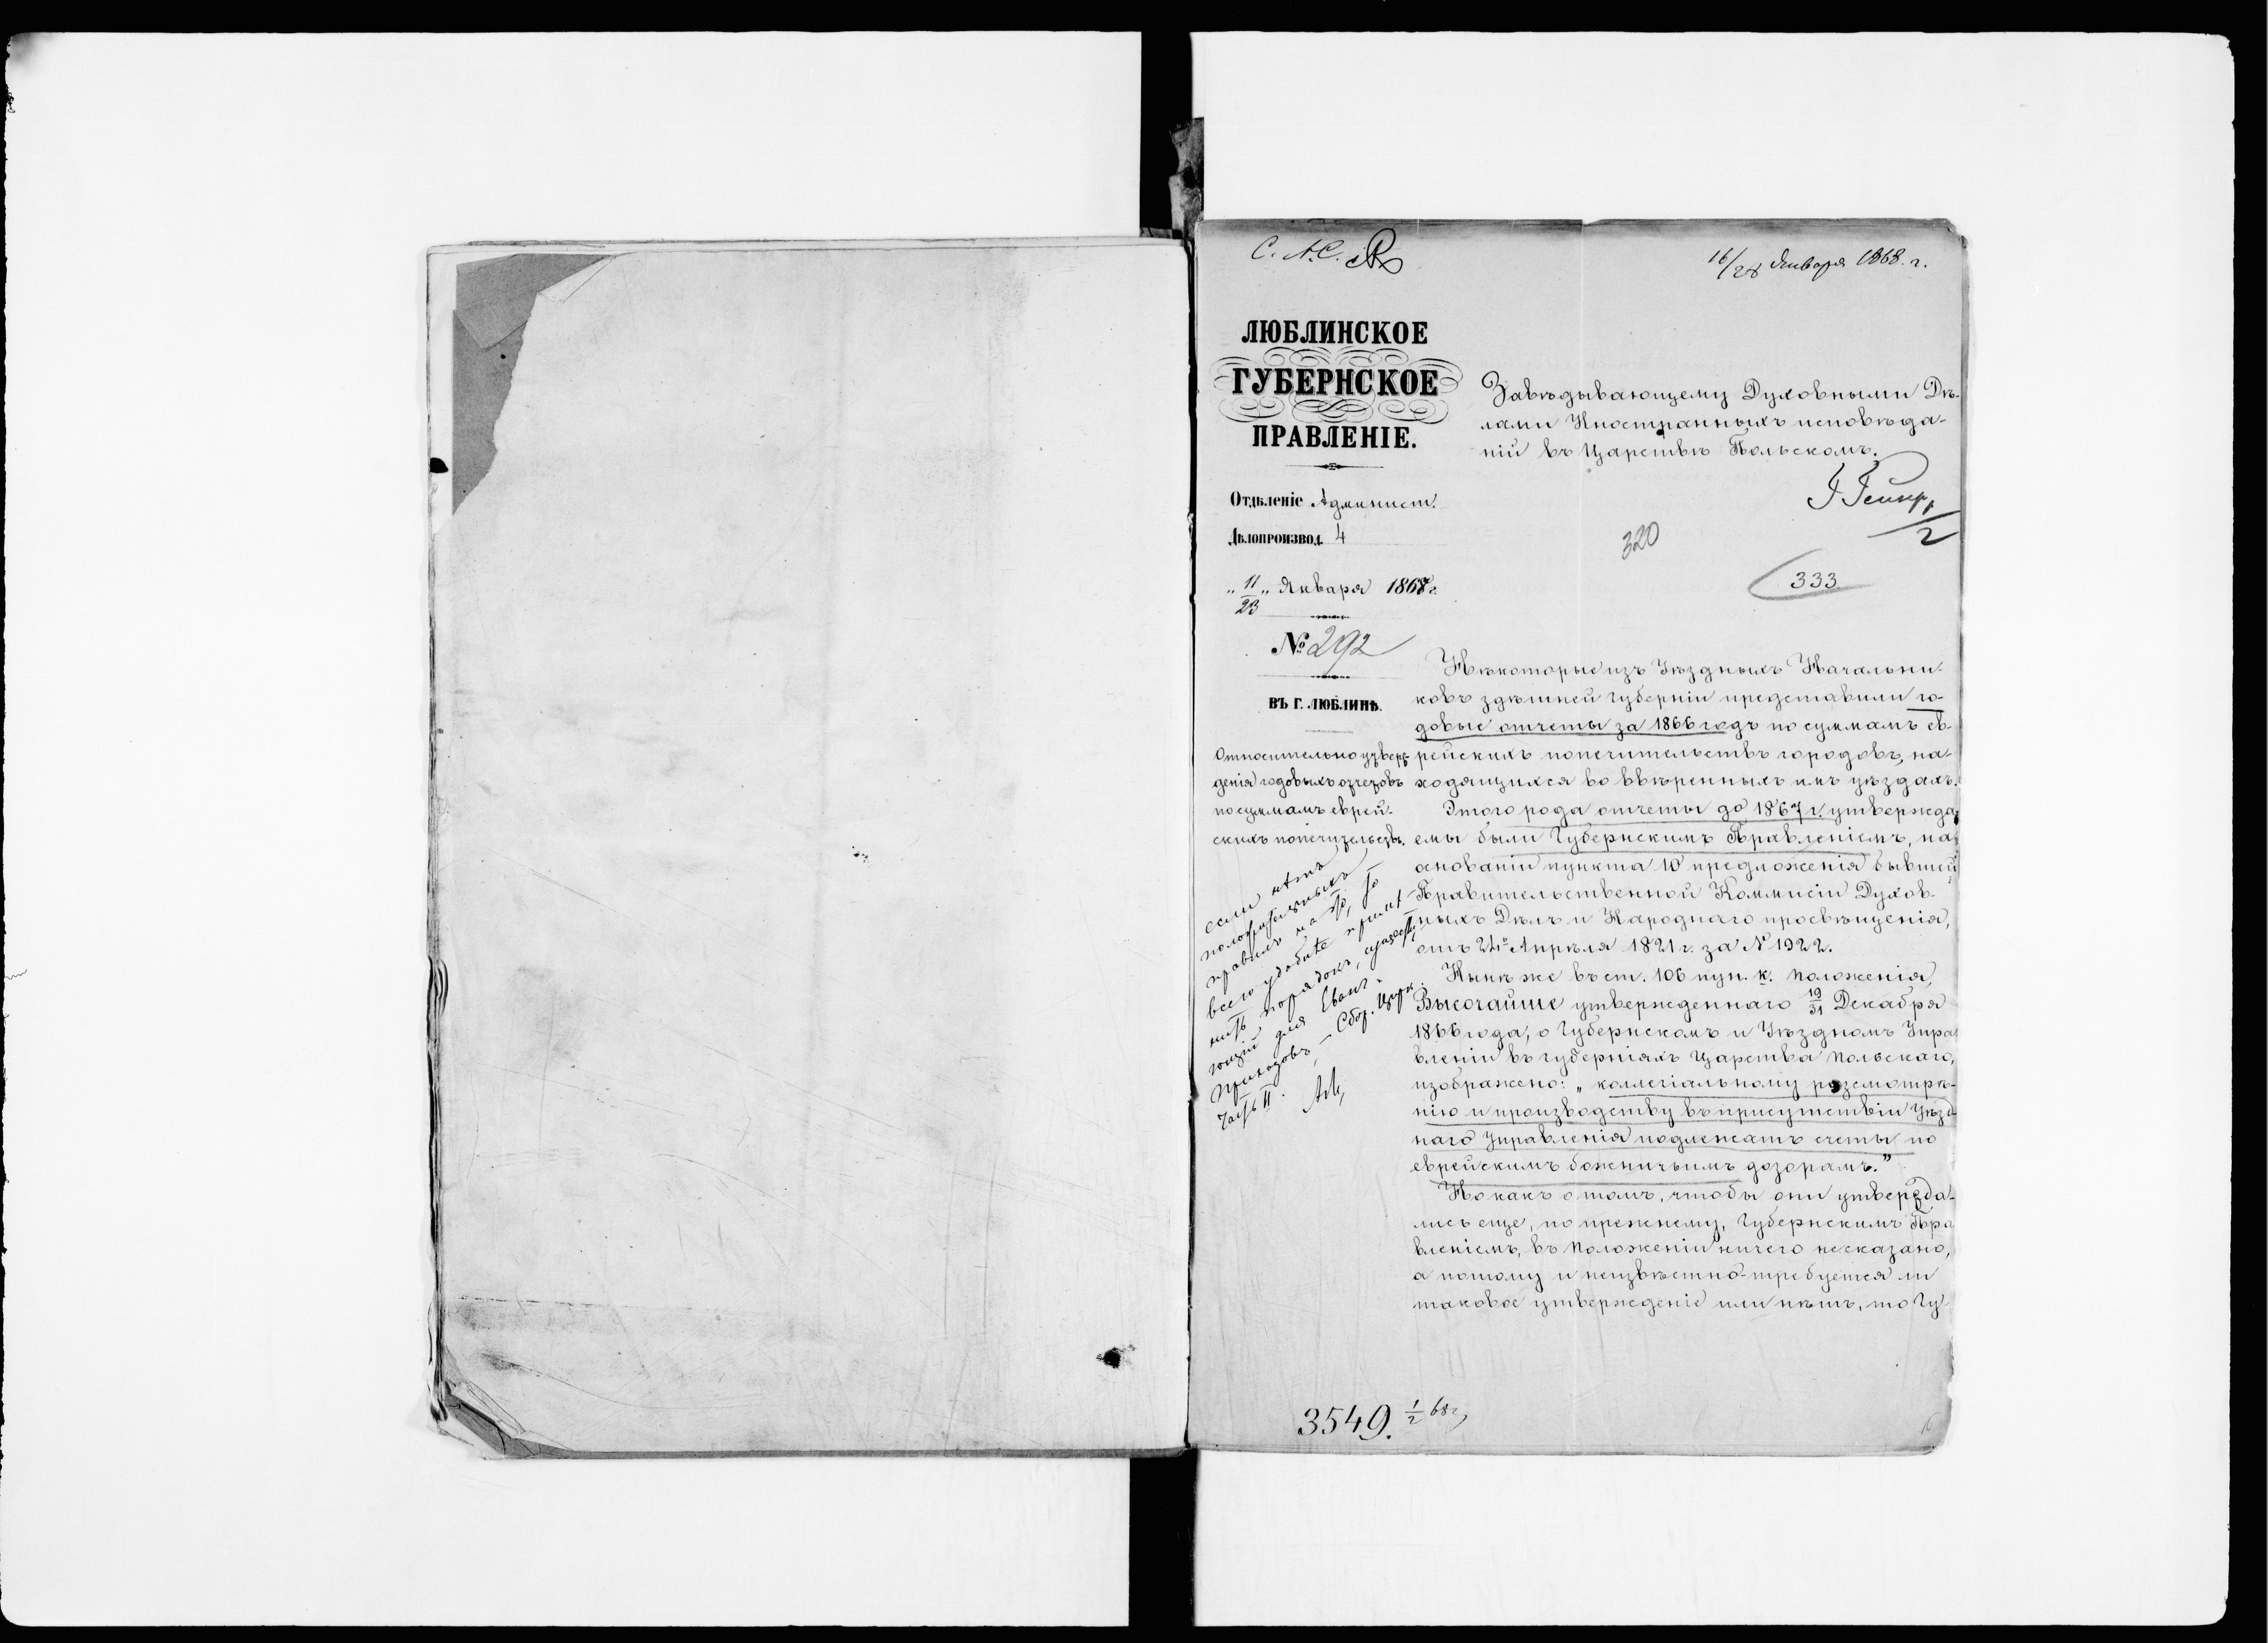 С. А. С.
16/28 Января 1868. г.
ЛЮБЛИНСКОЕ
ГУБЕРНСКОЕ
ПРАВЛЕНІЕ.
Отдѣленіе Админист.
Дѣлопроизвод. 4
„ 11/23 „ Января 1868 г.
№ 292
ВЪ Г. ЛЮБЛИНѢ.
Относительно утверж-
денія годовыхъ отчетовъ
по суммамъ еврей-
скихъ попечительствъ.
Завѣдывающему Духовными Дѣ-
лами Иностранныхъ исповѣда-
ній въ Царствѣ Польскомъ.
320
333
Нѣкоторые изъ Уѣздныхъ Начальни-
ковъ здѣшней Губерніи представили го-
довые отчеты за 1866 годъ по суммамъ ев-
рейскихъ попечительствъ городовъ, на-
ходящихся во ввѣренныхъ имъ уѣздахъ.
Этого рода отчеты до 1867 г. утвержда
емы были Губернскимъ Правленіемъ, на
основаніи пункта 10 предложенія бывшей
Правительственной Коммисіи Духов-
ныхъ Дѣлъ и Народнаго просвѣщенія,
отъ 24го Апрѣля 1821 г. за № 1922.
Нынѣ же въ ст. 106 пун. к. Положенія,
Высочайше утвержденнаго 19/31 Декабря
1866 года, о Губернскомъ и Уѣздномъ Упра
вленіи въ губерніяхъ Царства Польскаго,
изображено: „ коллегіальному розсмотрѣ-
нію и производству въ присутствіи Уѣзд-
наго Управленія подлежатъ счеты по
еврейскимъ божничьимъ дозорамъ."
Но какъ о томъ, чтобы они утвержда-
лись еще, по прежнему, Губернскимъ Пра
вленіемъ, въ Положеніи ничего несказано,
а потому и неизвѣстно-требуется ли
таковое утвержденіе или нѣтъ, то Гу
если нѣтъ
положительныхъ
правилъ на то, то
всего удобнѣе примѣ-
нить порядокъ, существу-
ющій для Еванг.
Приходовъ, – Сбор. Церк.
часть II.
3549. 1/2 68 г,